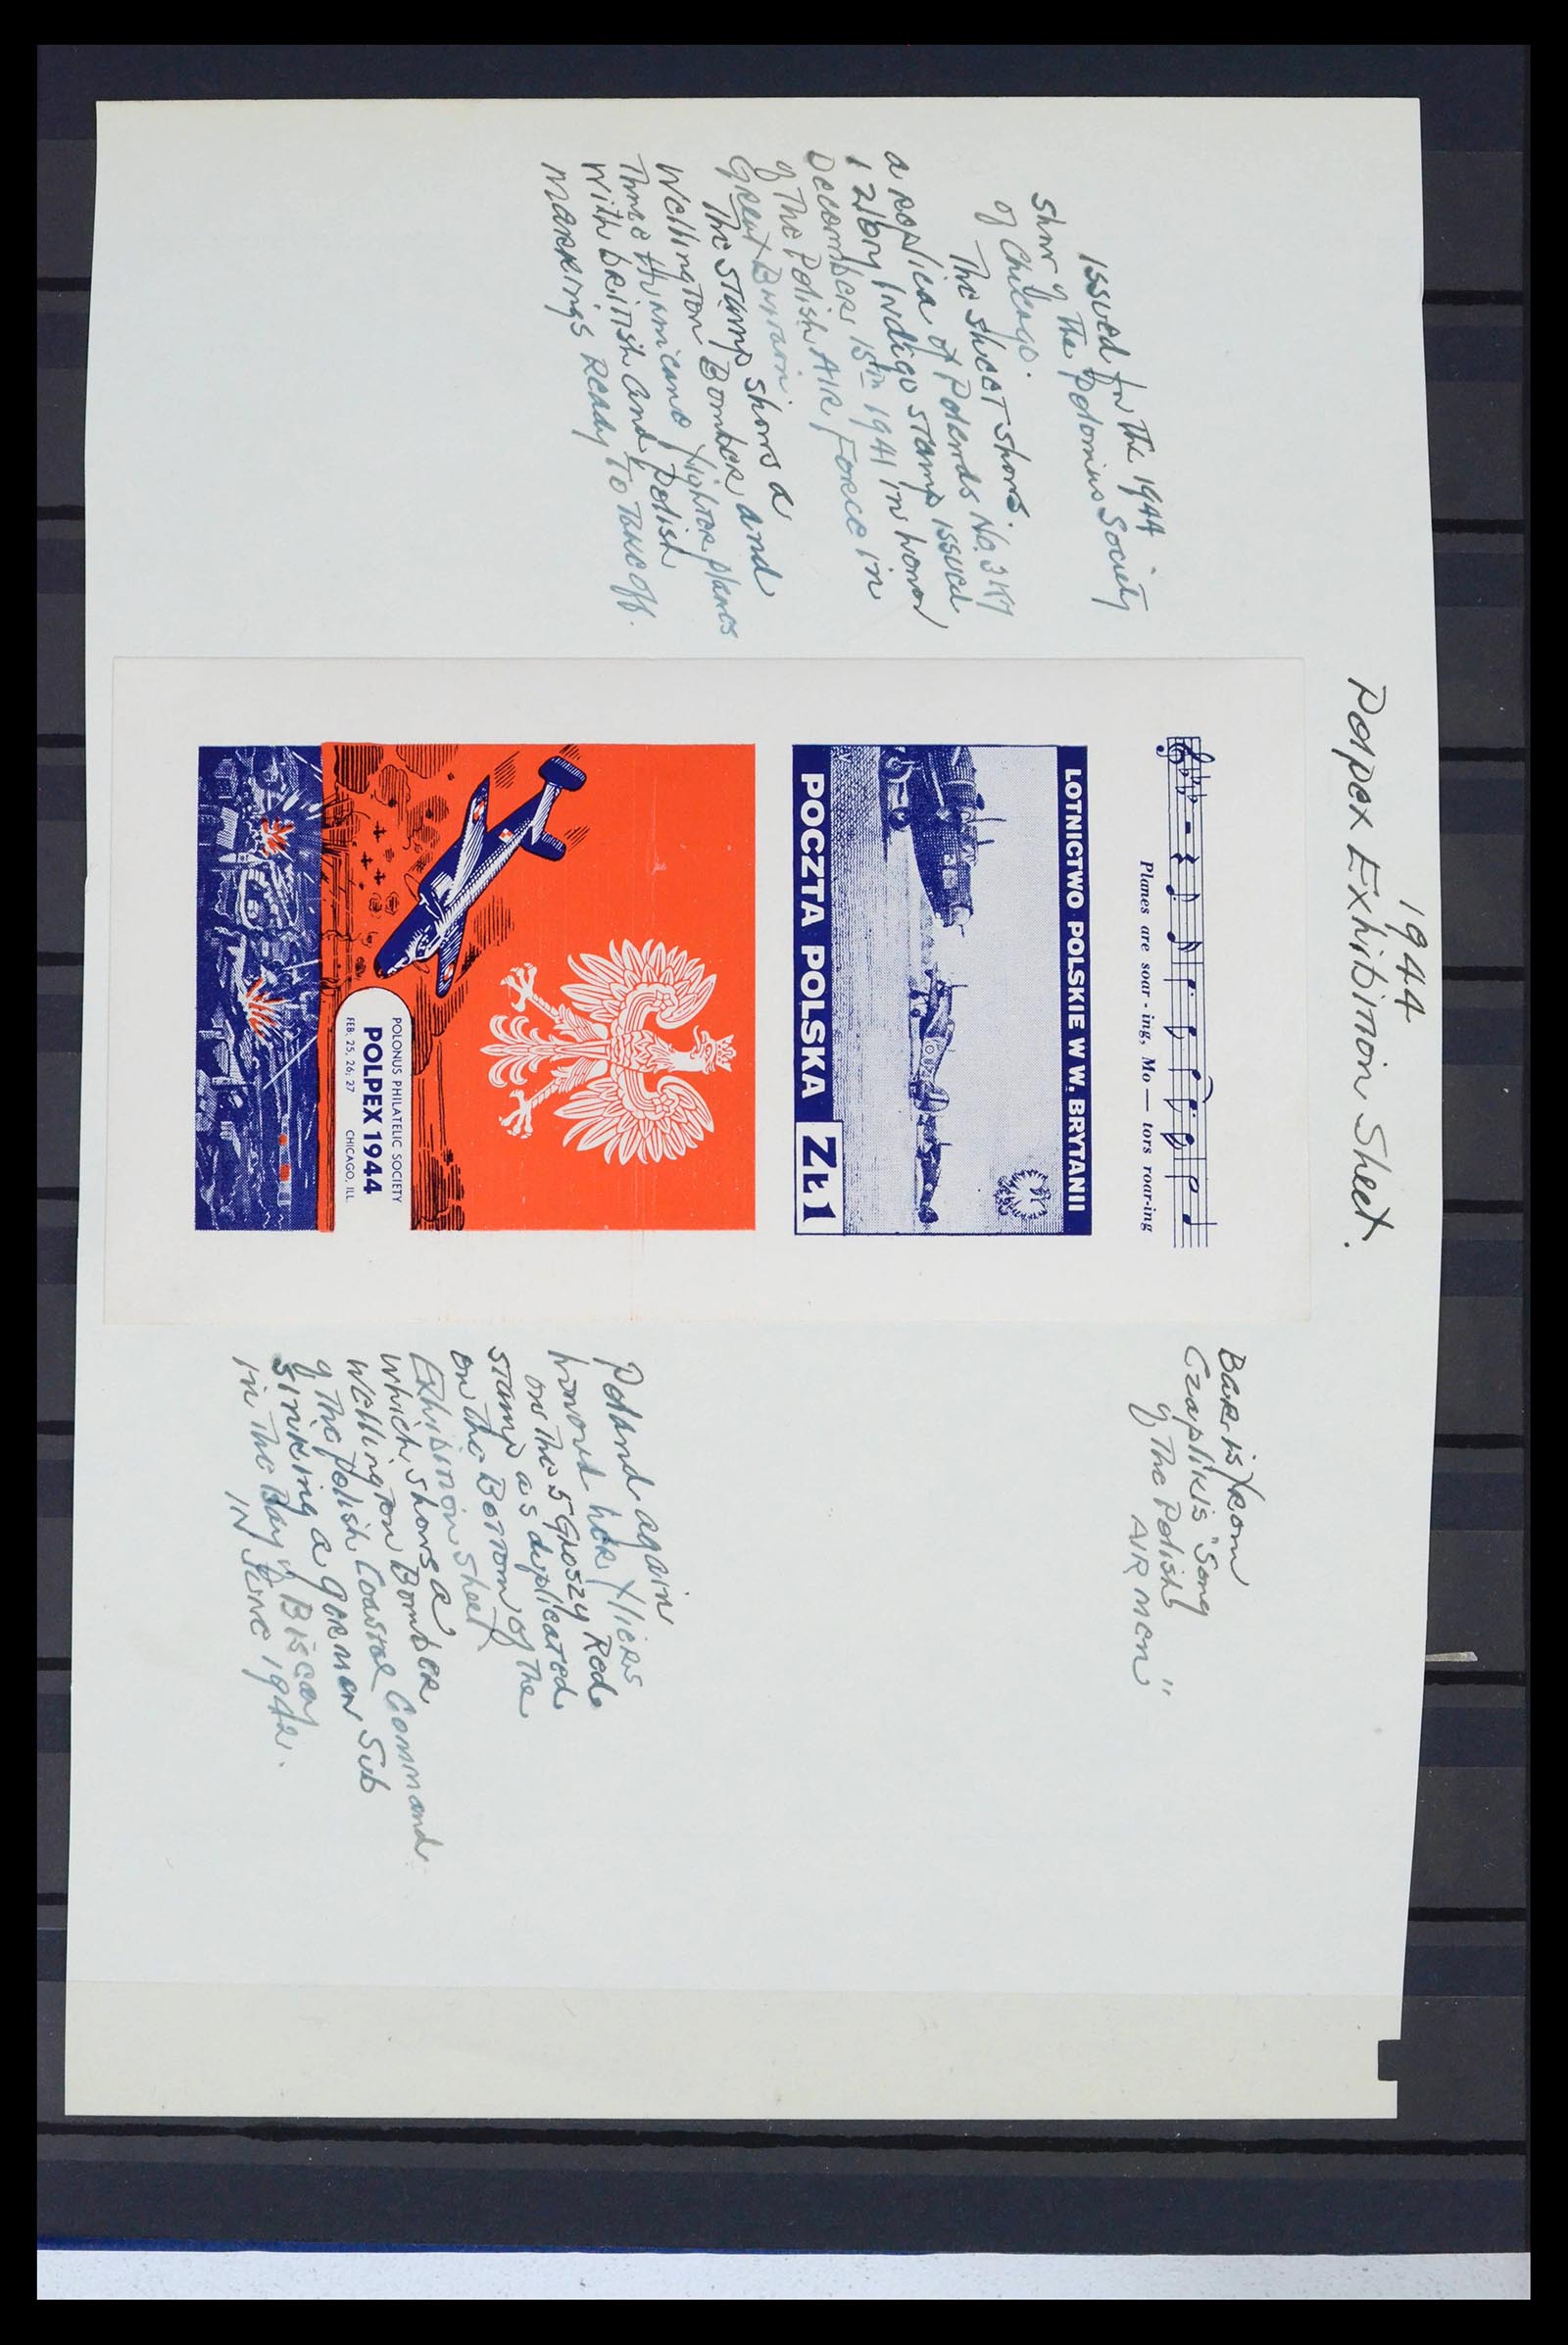 1944
Polpex Exhibition Sheet.
Issued for the 1944
Show of the Polonius Society
of Chicago.
The sheet shows
a replica of Polands No. 3K7
1 zloty Indigo stamp issued
December 15th 1941 in honor
of the Polish AIR Force in
Great Britain
The stamp shows a
Wellington Bomber and
Three Hurricane fighter planes
with british and Polish
Markings Ready To Take off.
Planes are soar - ing, Mo — tors roar-ing
LOTNICTWO POLSKIE W W. BRYTANII
POCZTA POLSKA ZŁ 1
POLONUS PHILATELIC SOCIETY
POLPEX 1944
FEB. 25, 26, 27 CHICAGO, ILL.
Bar is from
Czaplikis "Song
of The Polish
AIR Men"
Poland again
honored her fliers
on The 5 Groszy Red
stamp as duplicated
on The Bottom of The
Exhibition Sheet
which shows a
Wellington Bomber
of The Polish Coastal Command
sinking a german Sub
in The Bay of Biscay
IN June 1942.